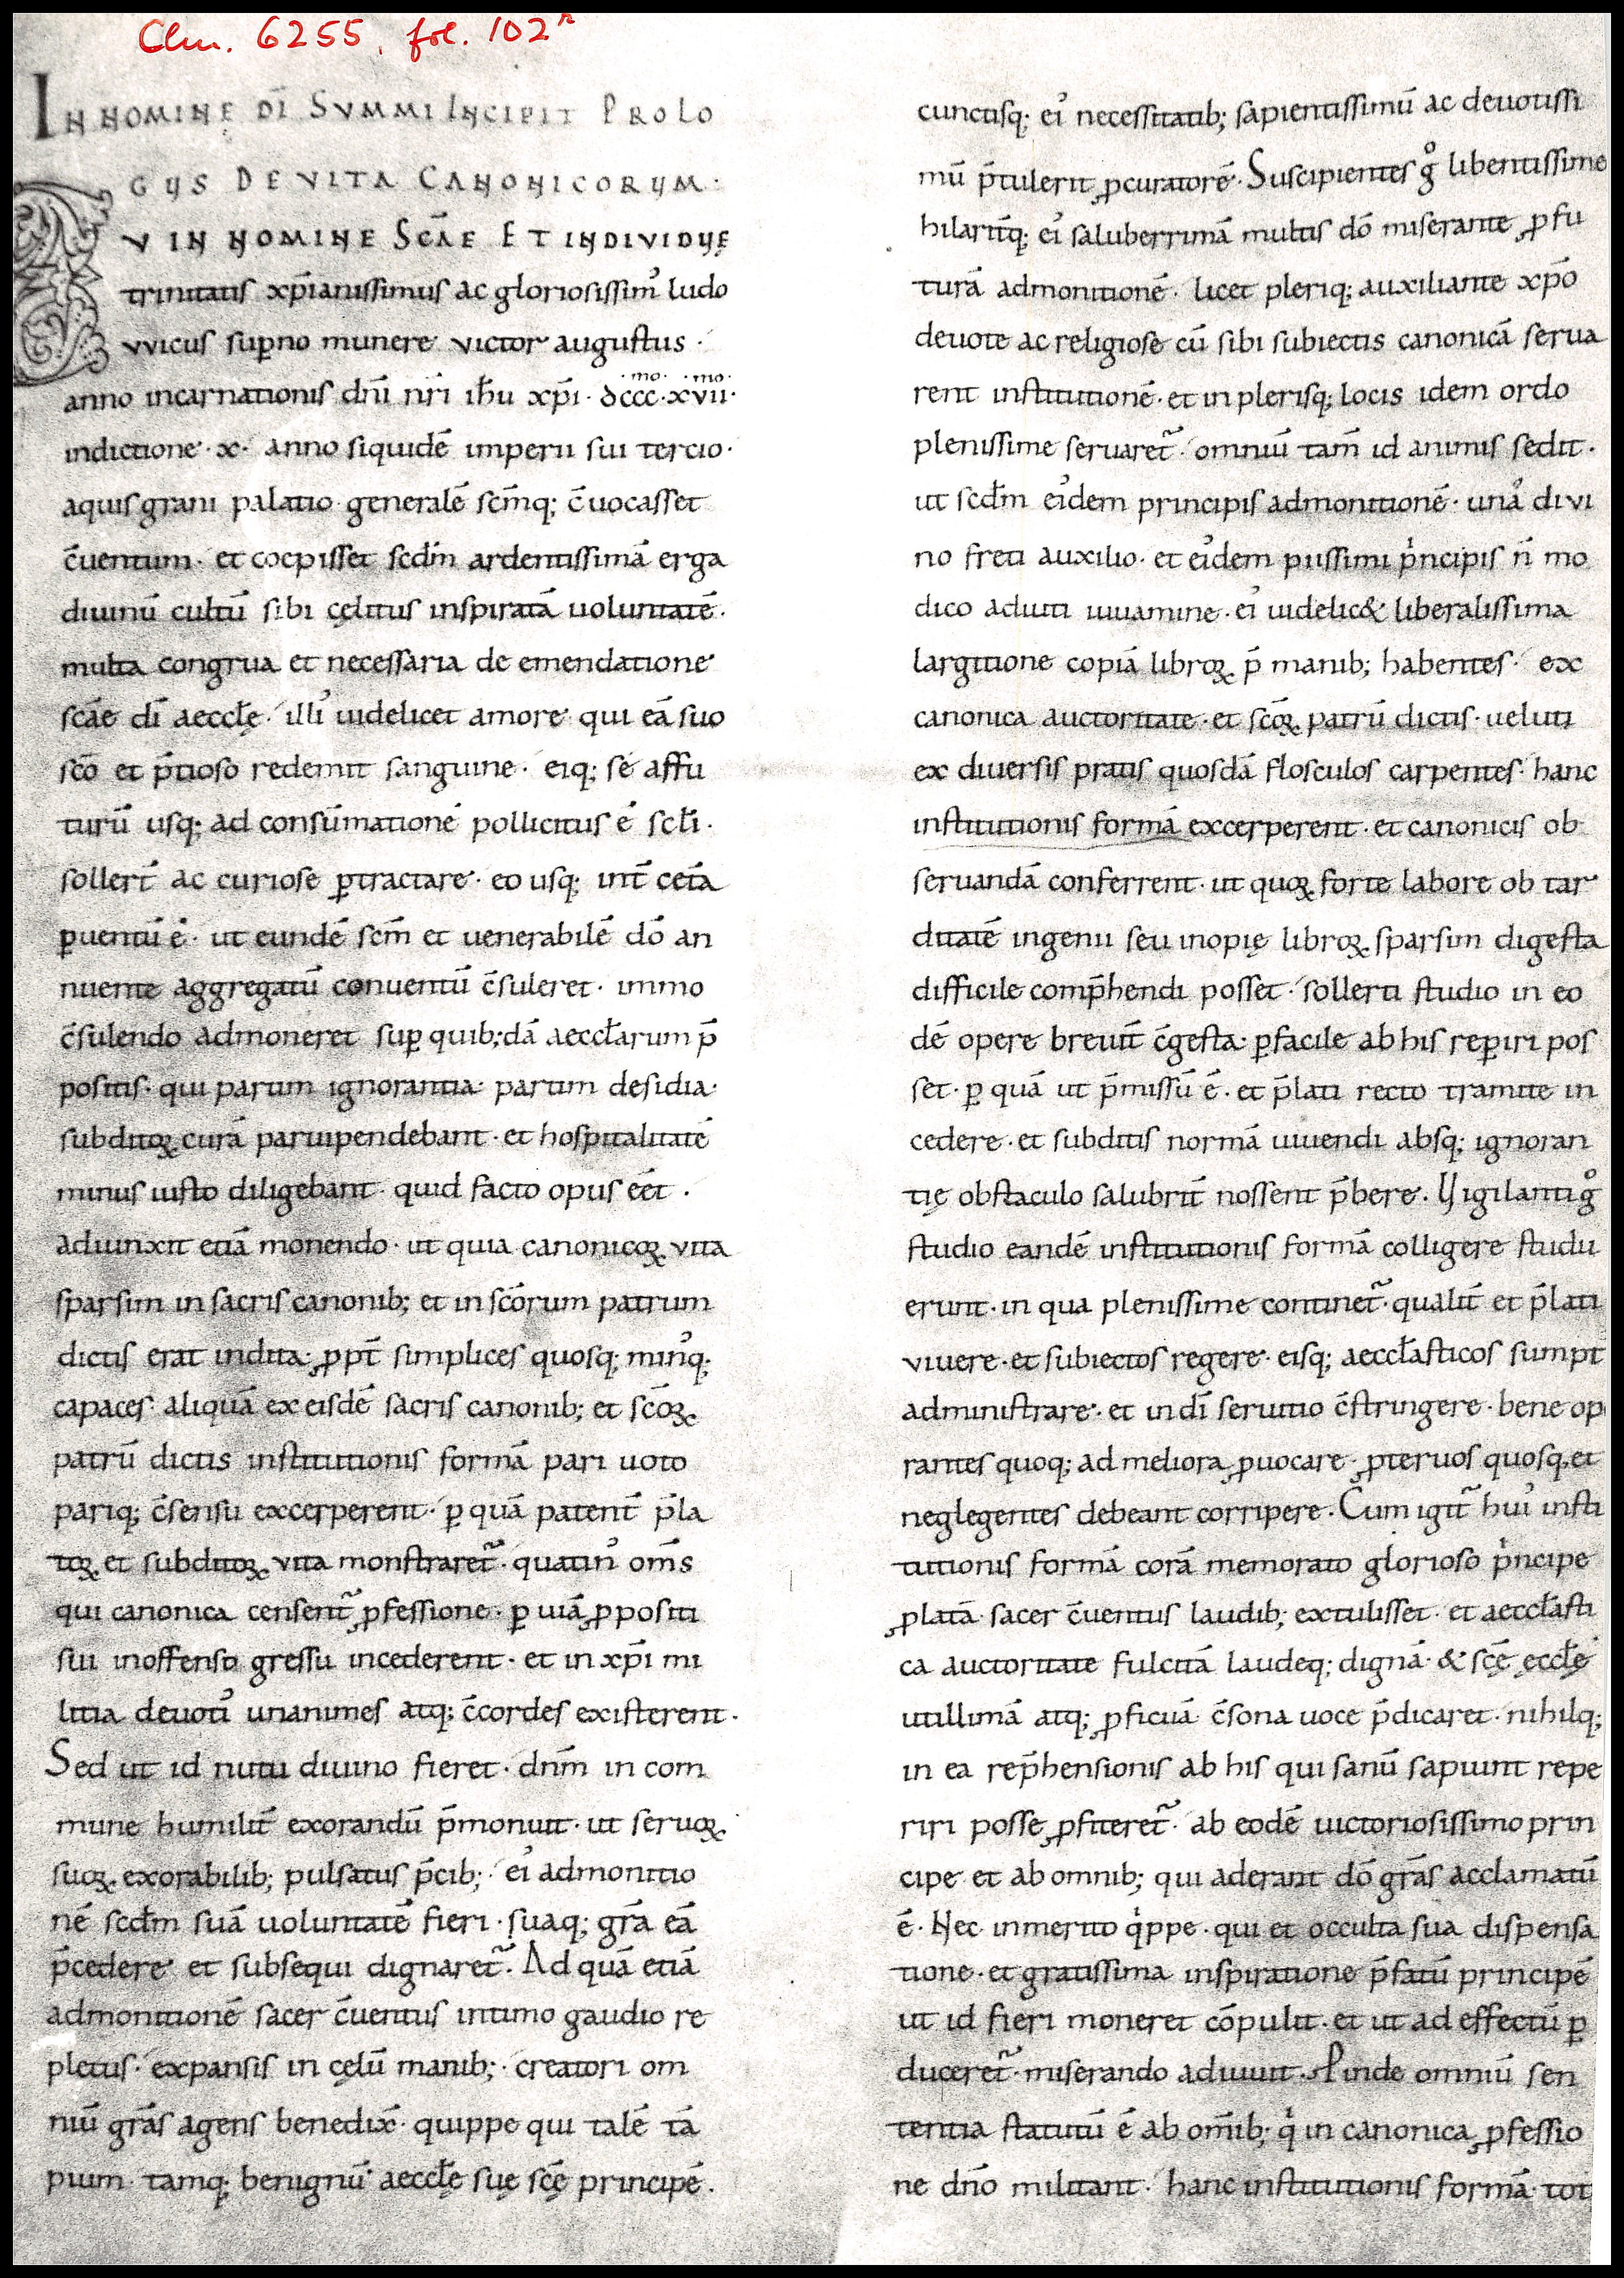 Clm. 6255, fol. 102r
IN NOMINE DI̅ SVMMI INCIPIT PROLO
GUS DE VITA CANONICORUM·
CV IN NOMINE SC̅AE ET INDIVIDUE
trinitatis xp̅ianissimus ac gloriosissim᾽ ludo
vvicus sup̲no munere victor augustus ·
anno incarnationis dn̅i nr̅i ih̅u xp̅i · dccc·mo· xvii·mo·
indictione · x · anno siquidē imperii sui tercio·
aquis grani palatio generalē sc̅mq; c̅uocasset
c̅uentum · et coepisset scd̅m ardentissimā erga
diuinū cultū sibi cęlitus inspiratā uoluntatē ·
multa congrua et necessaria de emendatione
sc̅ae di̅ aeccl̅ę · illi᾽ uidelicet amore qui eā suo
sc̅o et p̅tioso redemit sanguine · eiq; se affu
turū usq; ad consūmationē pollicitus ē scl̅i ·
sollert̅ ac curiose p̲tractare · eo usq; int̅ cet̅a
p̲uentū ē · ut eundē sc̅m et uenerabilē do̅ an
nuente aggregatū conuentū c̅suleret · immo
c̅sulendo admoneret sup̲ quib;dā aeccl̅arum p̅
positis · qui partim ignorantia· partim desidia·
subditoꝝ curā paruipendebant · et hospitalitatē
minus iusto diligebant · quid facto opus ee̅t ·
adiunxit etiā monendo · ut quia canonicoꝝ vita
sparsim in sacris canonib; et in sc̅orum patrum
dictis erat indita· ꝓpt̅ simplices quosq; min᾽q;
capaces aliquā ex eisdē sacris canonib; et sc̅oꝝ
patrū dictis institutionis formā pari uoto
pariq; c̅sensu excerperent · p̲ quā patent̅ p̅la
toꝝ et subditoꝝ vita monstraret̃ · quatin᾽ om̅s
qui canonica censent̃ ꝓfessione · p̲ uiā ꝓpositi
sui inoffenso gressu incederent · et in xp̅i mi
litia deuoti᾽ unanimes atq; c̅cordes existerent ·
Sed ut id nutu diuino fieret · dn̅m in com
mune humilit̅ exorandū p̅monuit · ut seruoꝝ
suoꝝ exorabilib; pulsatus p̅cib; ei᾽ admonitio
nē scd̅m suā uoluntatē fieri · suaq; gr̅a eā
p̅cedere et subsequi dignaret̃ · Ad quā etiā
admonitionē sacer c̅uentus intimo gaudio re
pletus · expansis in cęlū manib; · creatori om
niū gr̅as agens benedix̅ · quippe qui talē tā
pium tamq; benignū aeccl̅ę suę sc̅ę principē ·
cunctisq; ei᾽ necessitatib; sapientissimū ac deuotissi
mū p̅tulerit ꝓcuratorē · Suscipientes gͦ libentissime
hilarit̅q; ei᾽ saluberrimā multis do̅ miserante ꝓfu
turā admonitionē · licet pleriq; auxiliante xp̅o
deuote ac religiose cū sibi subiectis canonicā serua
rent institutionē · et in plerisq; locis idem ordo
plenissime seruaret̃ · omniū tam̅ id animis sedit ·
ut scd̅m ei᾽dem principis admonitionē · unā divi
no freti auxilio · et ei᾽dem piissimi pͥncipis n̅ mo
dico adiuti iuuamine · ei᾽ uidelic& liberalissima
largitione copiā libroꝝ p̅ manib; habentes · ex
canonica auctoritate · et sc̅oꝝ patrū dictis · ueluti
ex diuersis pratis quosdā flosculos carpentes · hanc
institutionis formā excerperent · et canonicis ob
seruandā conferrent · ut quoꝝ forte labore ob tar
ditatē ingenii seu inopię libroꝝ sparsim digesta
difficile comp̅hendi posset · sollerti studio in eo
dē opere breuit̅ c̅gesta · p̲facile ab his rep̲iri pos
set · p̲ quā ut p̅missū ē · et p̅lati recto tramite in
cedere · et subditis normā uiuendi absq; ignoran
tię obstaculo salubrit̅ nossent p̅bere · Uigilanti gͦ
studio eandē institutionis formā colligere studu
erunt · in qua plenissime continet̃ · qualit̅ et p̅lati
vivere · et subiectos regere · eisq; aeccl̅asticos sumpt
administrare · et in di̅ seruitio c̅stringere · bene op
rantes quoq; ad meliora ꝓuocare · ꝓteruos quosq; et
neglegentes debeant corripere · Cum igit̃ hui᾽ insti
tutionis formā corā memorato glorioso pͥncipe
ꝓlatā sacer c̅uentus laudib; extulisset · et aeccl̅asti
ca auctoritate fulcitā laudeq; dignā · & sc̅ę eccl̅ę
utillimā atq; ꝓficuā c̅sona uoce p̅dicaret · nihilq;
in ea rep̅hensionis ab his qui sanū sapiunt repe
riri posse ꝓfiteret̃ · ab eodē uictoriosissimo prin
cipe et ab omnib; qui aderant do̅ gr̅as acclamatū
ē · Nec inmerito qͥppe · qui et occulta sua dispensa
tione · et gratissima inspiratione p̅fatū principē
ut id fieri moneret cōpulit · et ut ad effectū p̲
duceret̃ · miserando adiuuit · P̲inde omniū sen
tentia statutū ē ab om̅ib; qͥ in canonica ꝓfessio
ne dn̅o militant · hanc institutionis formā tot